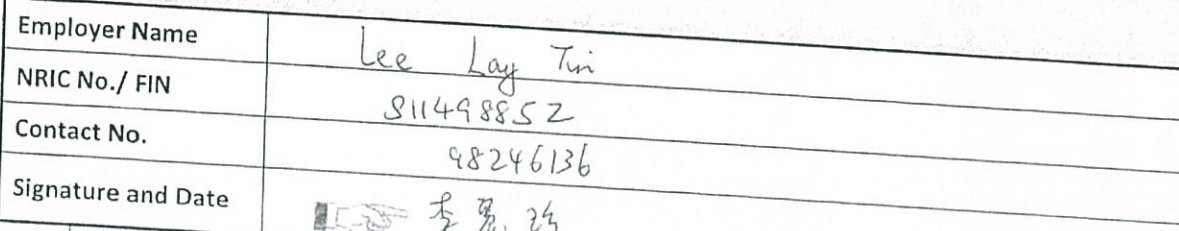 Employer Name Lee Lay Tin
NRIC No./ FIN S1149885Z
Contact No. 98246136
Signature and Date 李